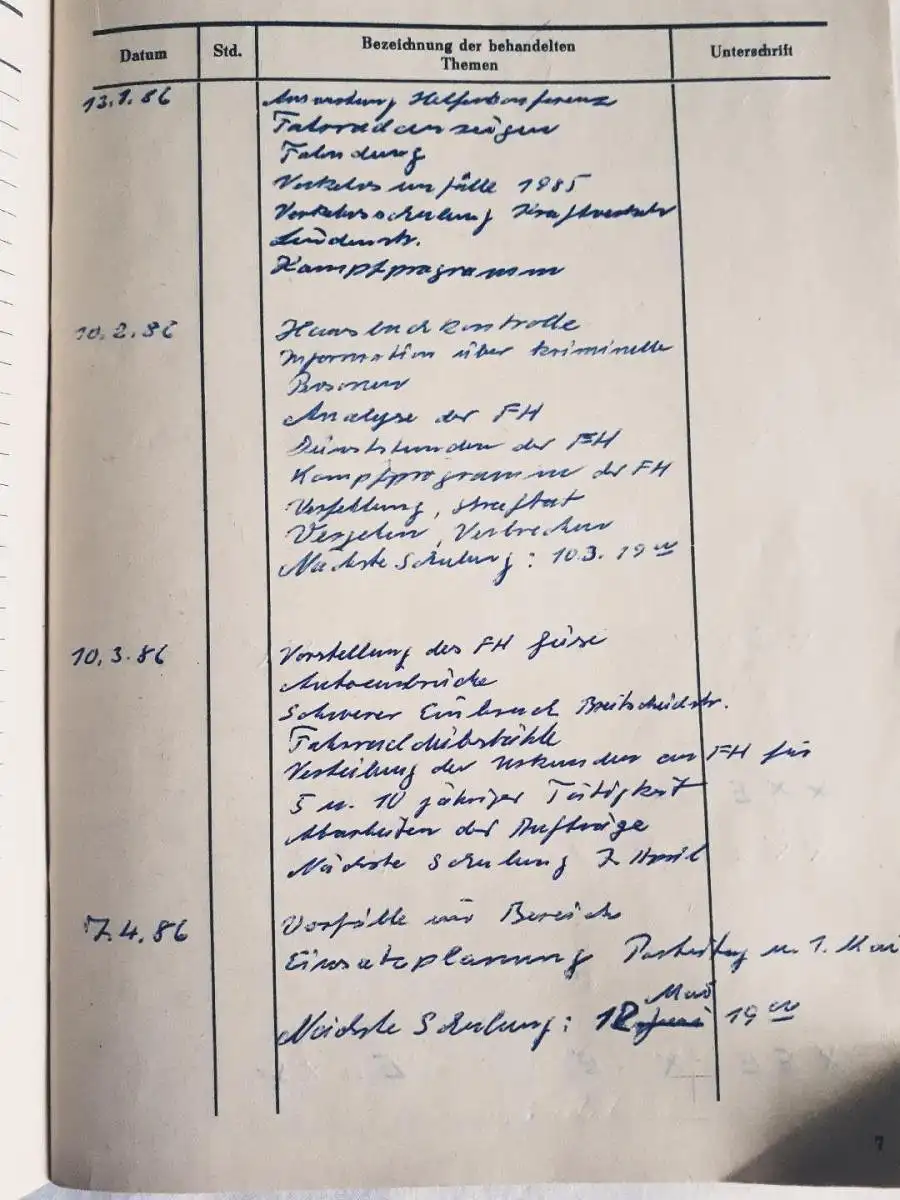 Datum Std. Bezeichnung der behandelten Themen Unterschrift
13.1.86 Auswertung Helferkonferenz
Fahrradanzeigen
Fahndung
Verkehrsunfälle 1985
Verkehrsschulung Kraftverkehr
Lindenstr.
Kampfprogramm
10.2.86 Hausbuchkontrolle
Information über kriminelle
Personen
Analyse der FH
Dienststunden der FH
Kampfprogramm der FH
Verfehlung, Straftat
Vergehen, Verbrechen
Nächste Schulung: 10.3. 19 00
10.3.86 Vorstellung des FH
Autoeinbrüche
Schwerer Einbruch Breitscheidstr.
Fahrraddiebstähle
Verteilung der Urkunden an FH für
5 u. 10 jähriger Tätigkeit
Abarbeiten der Aufträge
Nächste Schulung 7. April
7.4.86 Vorfälle im Bereich
Einsatzplanung Parteitag u. 1. Mai
Mai
Nächste Schulung: 12. Juni 19 00
7